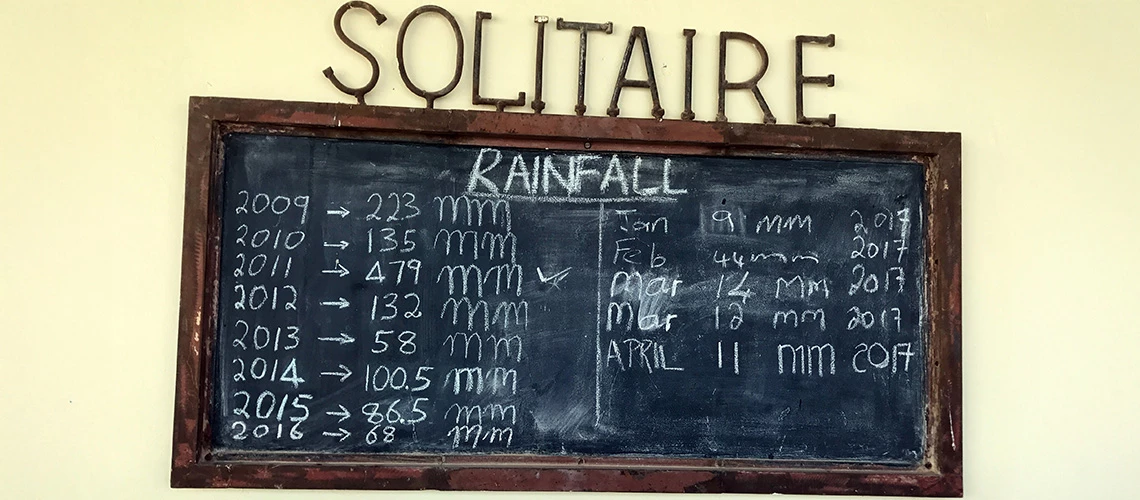 SOLITAIRE
RAINFALL
2009 → 223 mm
2010 → 135 mm
2011 → 479 mm ✓
2012 → 132 mm
2013 → 58 mm
2014 → 100.5 mm
2015 → 86.5 mm
2016 → 68 mm
Jan 9 mm 2017
Feb 44mm 2017
Mar 14 mm 2017
Mar 12 mm 2017
APRIL 11 mm 2017